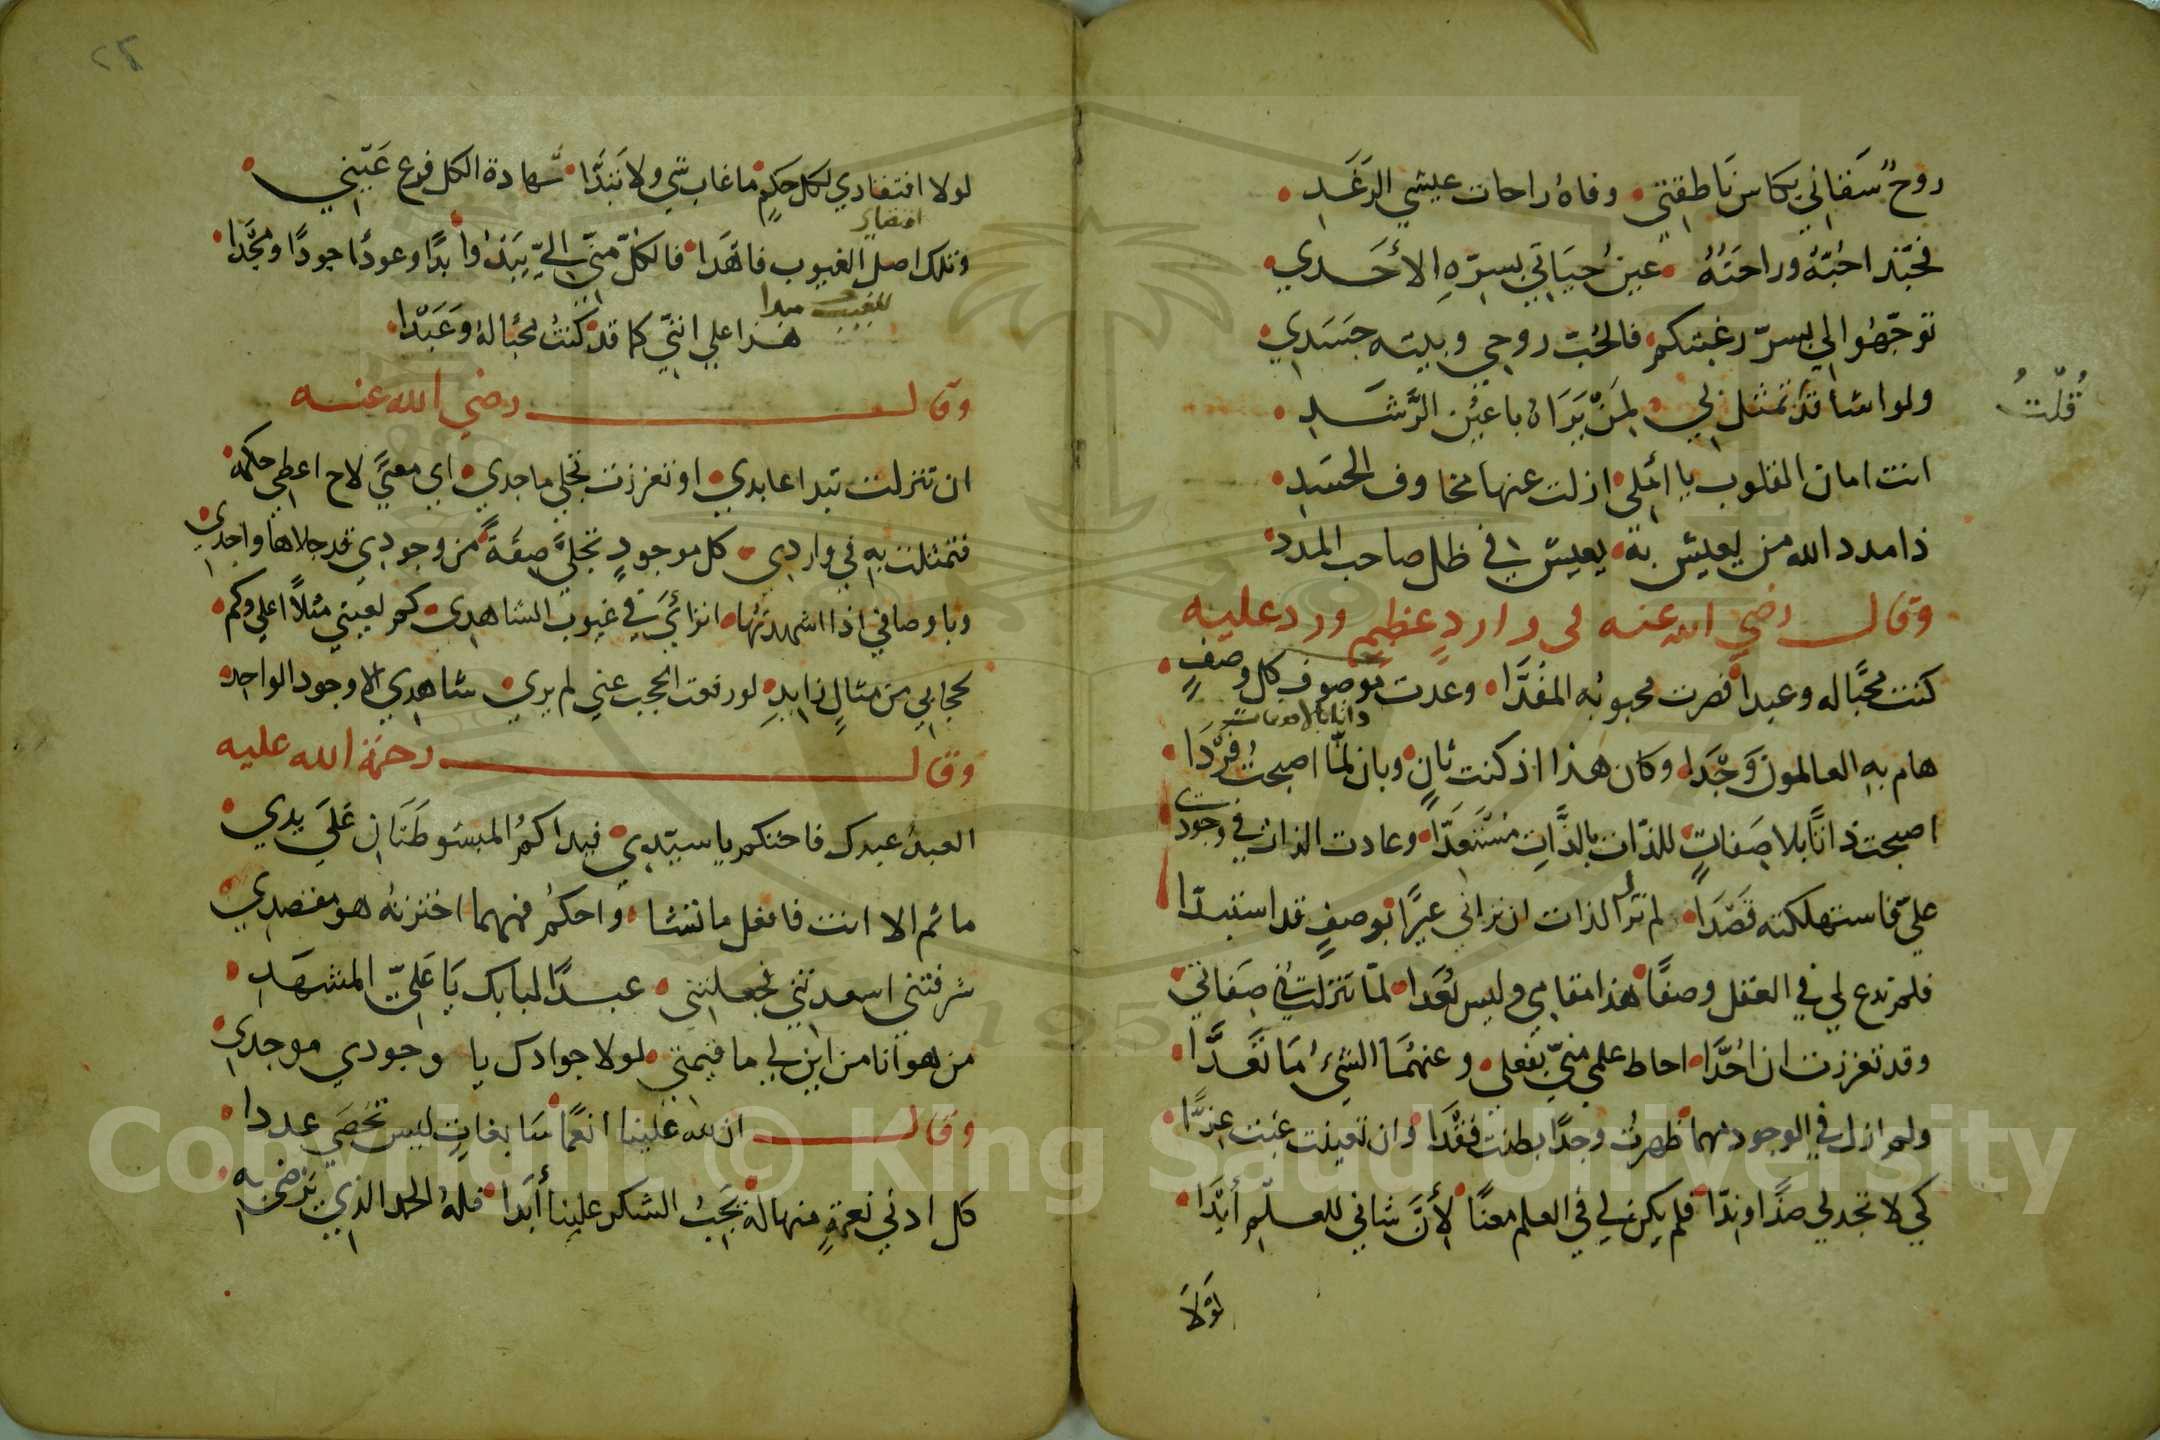 روحٌ سَقاني بكاس نَاطقتي وفاهُ راحات عيشي الرَغَدِ
فحبّذا حُبّهُ وراحَتُهُ عينُ حيَاتي بسرّهِ الأحَدي
توجّهُوا لي بسرّ رغبتكم فالحُبّ روحي وبيته جسَدي
ولو اشا قُلتُ تمثل لي لمَنْ يَرَاهُ باعيُن الرَّشَدِ
قُلتُ
انت امان القلوب يا املي ازلت عنها مخاوف الحسَدِ
ذا مدد الله من يعيش به يعيش في ظل صاحب المدد
وقال رضي الله عنه في واردٍ عظيم ورد عليه
كنت محبًّا له وعبدا فصرت محبوبُه المفدَّا وعدت موصوف كل وصفٍ
هام به العالمون وَجْدَا وكان هذا اذ كنت ثانٍ وبان لمّا اصبحتُ فرْدَا
اصبحت ذاتًا بلا صفاتٍ للذات بالذَّاتِ مُسْتَعدَّا وعادت الذات في وجودي
عليّ فاستهلكته قَصْدَا لم ترَ الذات ان تراني غيرًا بوصفٍ قد استبدّا
فلم تدع لي في العقل وصفًا هذا مقامي وليس بُعْدَا لمّا تنزلتُ في صفاتي
وقد تعززت ان اُحُدَّا احاط علمي منيّ بفعلي وعنهُمَا الشيءُ مَا تَعَدَّا
ولم ازل في الوجود مهما ظهرتُ وجدًا بطنتُ فقْدَا وان تعينت غبت عزًّا
كي لا تجد لي ضدًا وندّا فلم يكن لي في العلم معنًا لأنَّ شاني للعلم أبْدَا
لَوْلَا
لولا افتقادي لكل حكمٍ ما غاب شي ولا تَبَدَّا شهادة الكل فرع غَيْبي
وتلك اصل الغيوب فاهْدَا فالكلّ منّي اليّ يَبْدُوا بدًا وعودًا جودًا ومجْدَا
هذا علي انني كما قد كنتُ محبًّا لهُ وَعَبْدَا
وقال رضي الله عنه
ان تنزلت تبدا عابدي او تعززت تجلي ماجدي اي معنيً لاح اعطي حكمه
فتمثلت به في واردي كل موجودٍ تجلّي صفةً من وجودي قد جلاها واجدي
وباوصافي اذا اشهدتُها انزائَي في غيوب الشاهدي كم لغيبي مثلاً اعلي وكم
لحجابي من مثالٍ زايدِ لو رفعت الحجب عني لم يري شاهدي الا وجود الواحد
وقال رحمة الله عليه
العبدُ عبدك فاحتكم يا سيّدي فيداكمُ المبسُوطَتَانِ عَلَي يدي
ما ثم الا انت فافعل ما تشا واحكُم فمهما اخترتهُ هو مقصدي
شرفتني اسعدتني فجعلتني عبدًا لبابك يَا عَليّ المشهَدِ
من هو انا من اين لي ما قيمتي لولا جوادك يا وجودي موجدي
وقال ان لله علينا انعمًا سَابغاتٍ ليس تحُصَي عددا
كل ادني نعمةٍ منها لهُ يجَبُ الشكر علينا أبَدا فلهُ الحمد الذي يَرْضي به